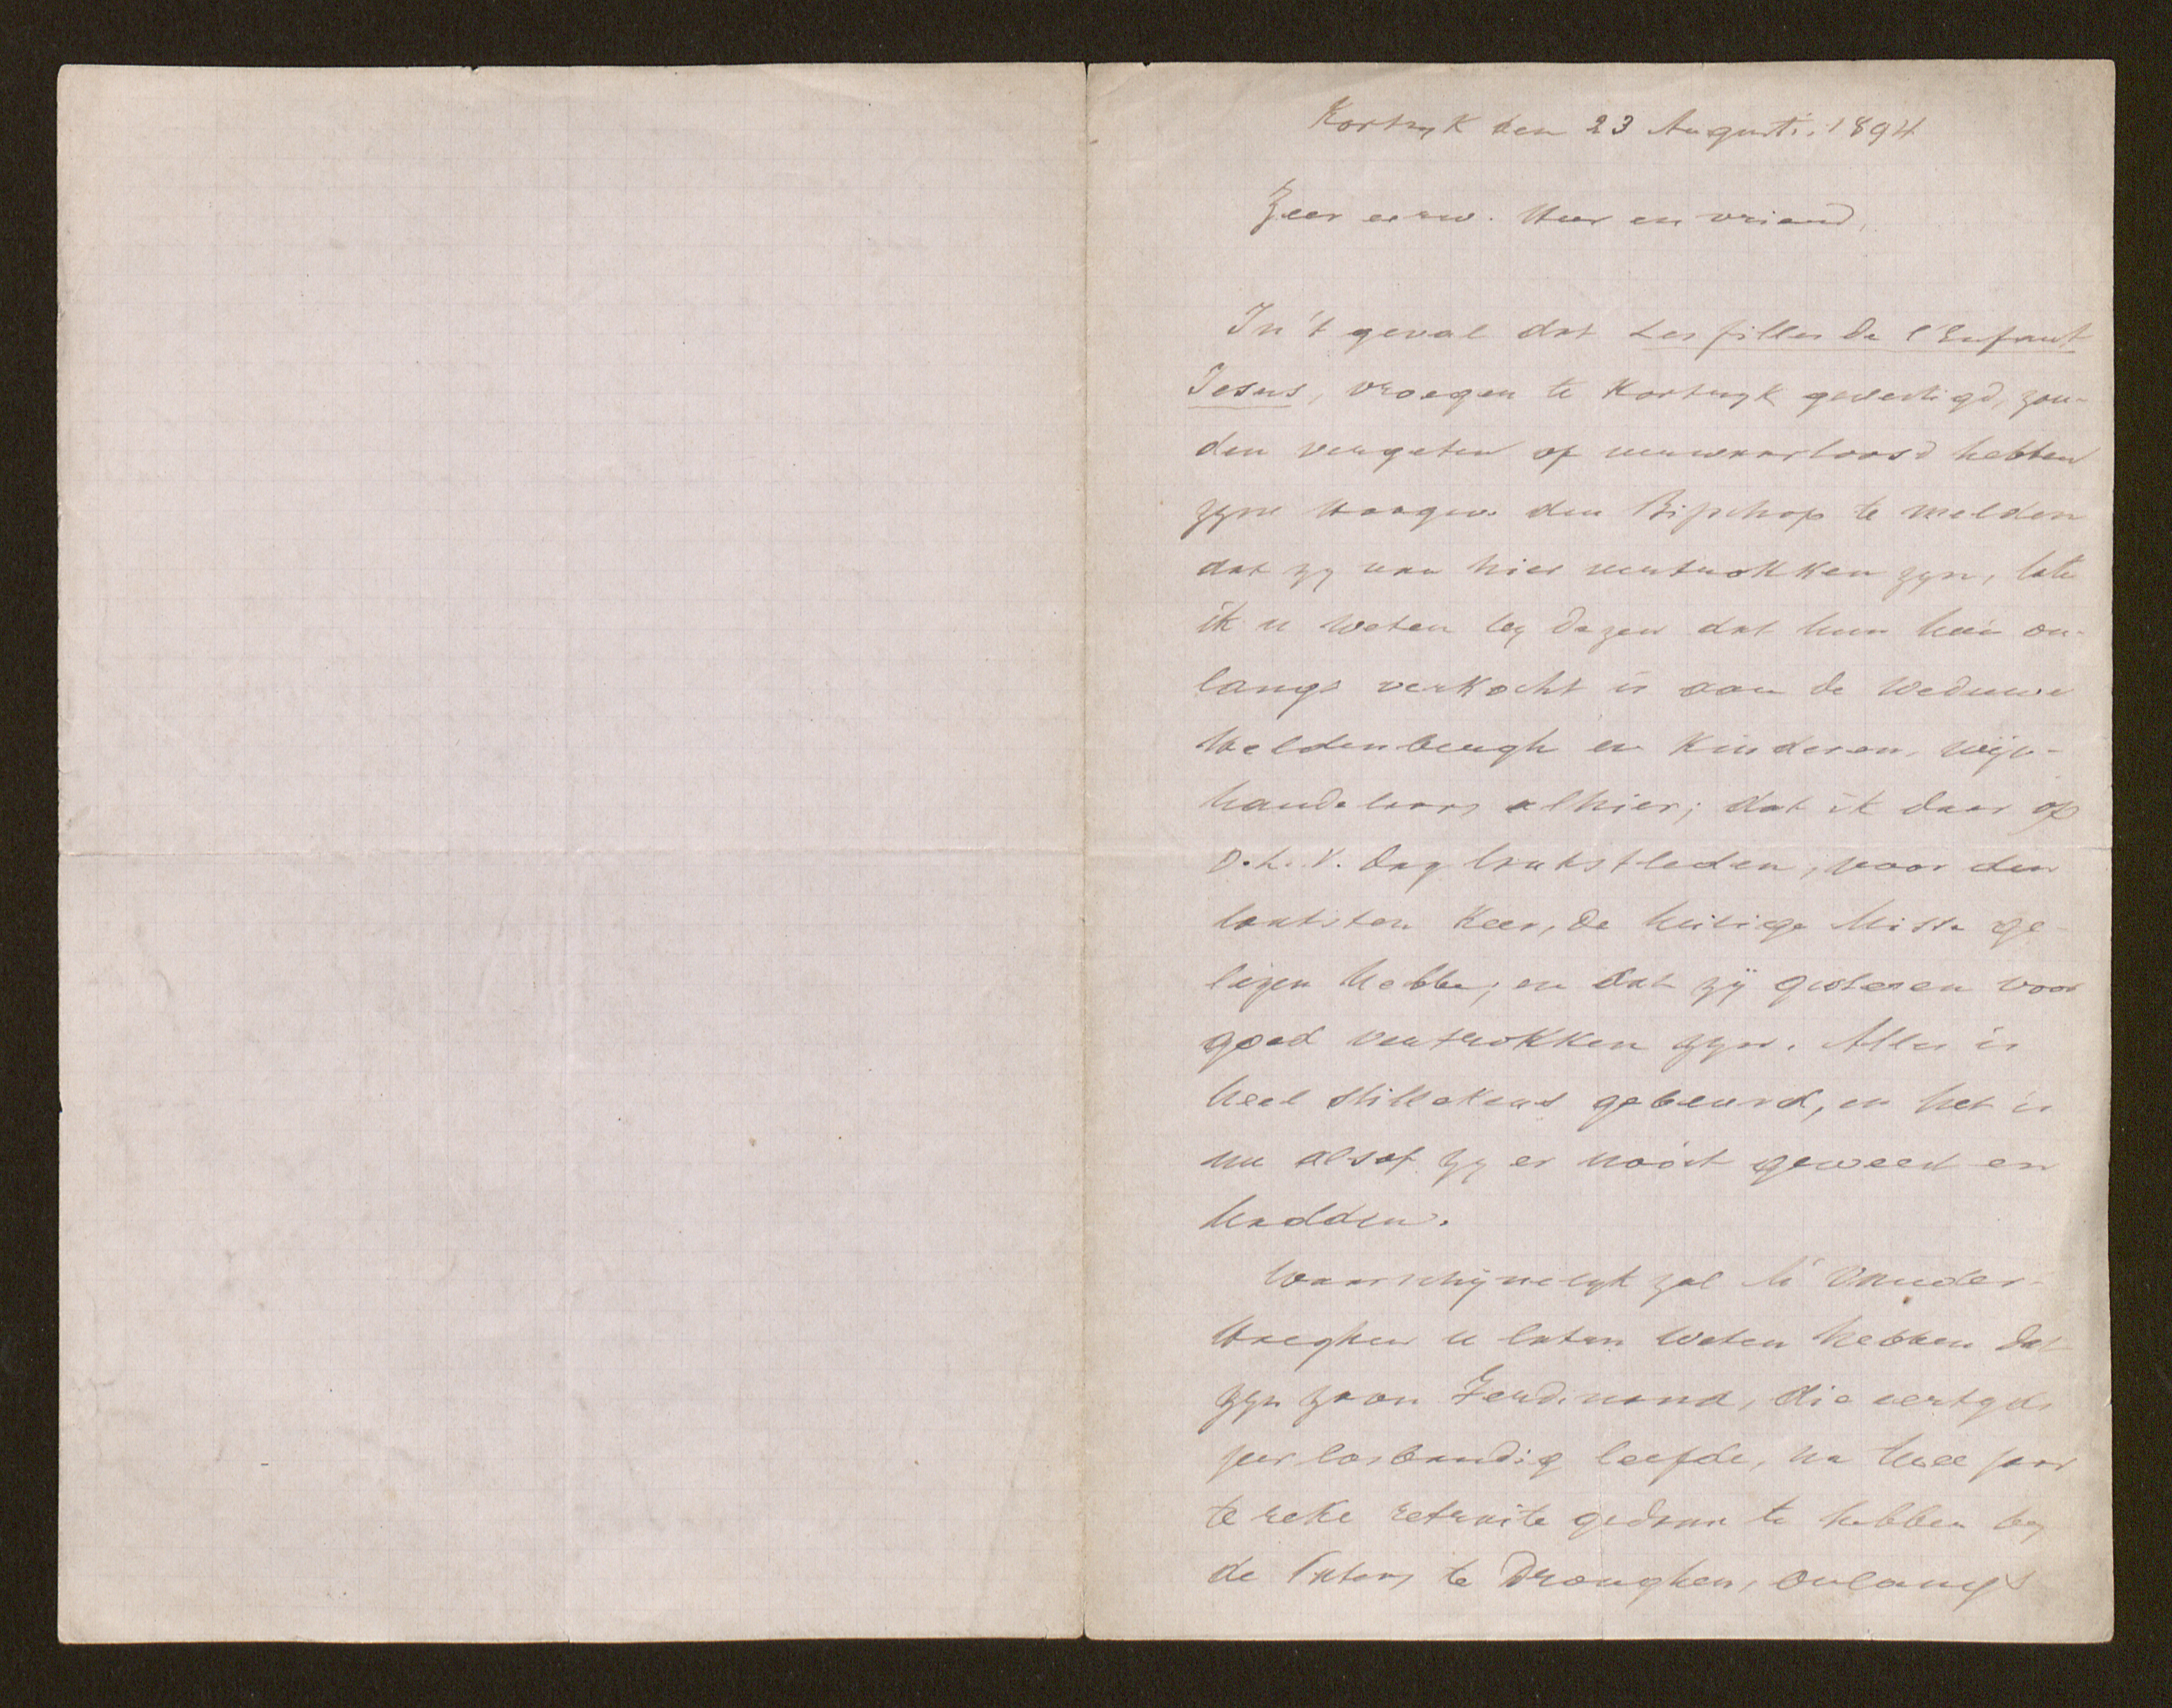 Kortryk den 23 Augusti 1894
Zeer eerw. Heer en vriend,
In 't geval dat Les filles de l'Enfant
Jesus, vroeger te Kortryk gevestigd, zou-
den vergeten of verwaarloosd hebben
zyne Hoogw. den Bisschop te melden
dat zy van hier vertrokken zyn, late
ik u weten by dezen dat hun huis on-
langs verkocht is aan de Weduwe
en Kinderen, wijn-
handelaars alhier; dat ik daar op
O.L.V. dag laatstleden, voor den
laatsten keer, de heilige Misse ge-
lezen hebbe; en dat zij gisteren voor
goed vertrokken zyn. Alles is
heel stillekens gebeurd, en het is
nu alsof zy er nooit geweest en
hadden.
Waarschijnelyk zal Mr Vander-
Haeghen u laten weten hebben dat
zyn zoon Ferdinand, die eertyds
zeer losbandig leefde, na twee jaar
te reke retraite gedaan te hebben by
de Paters te Dronghen, onlangs